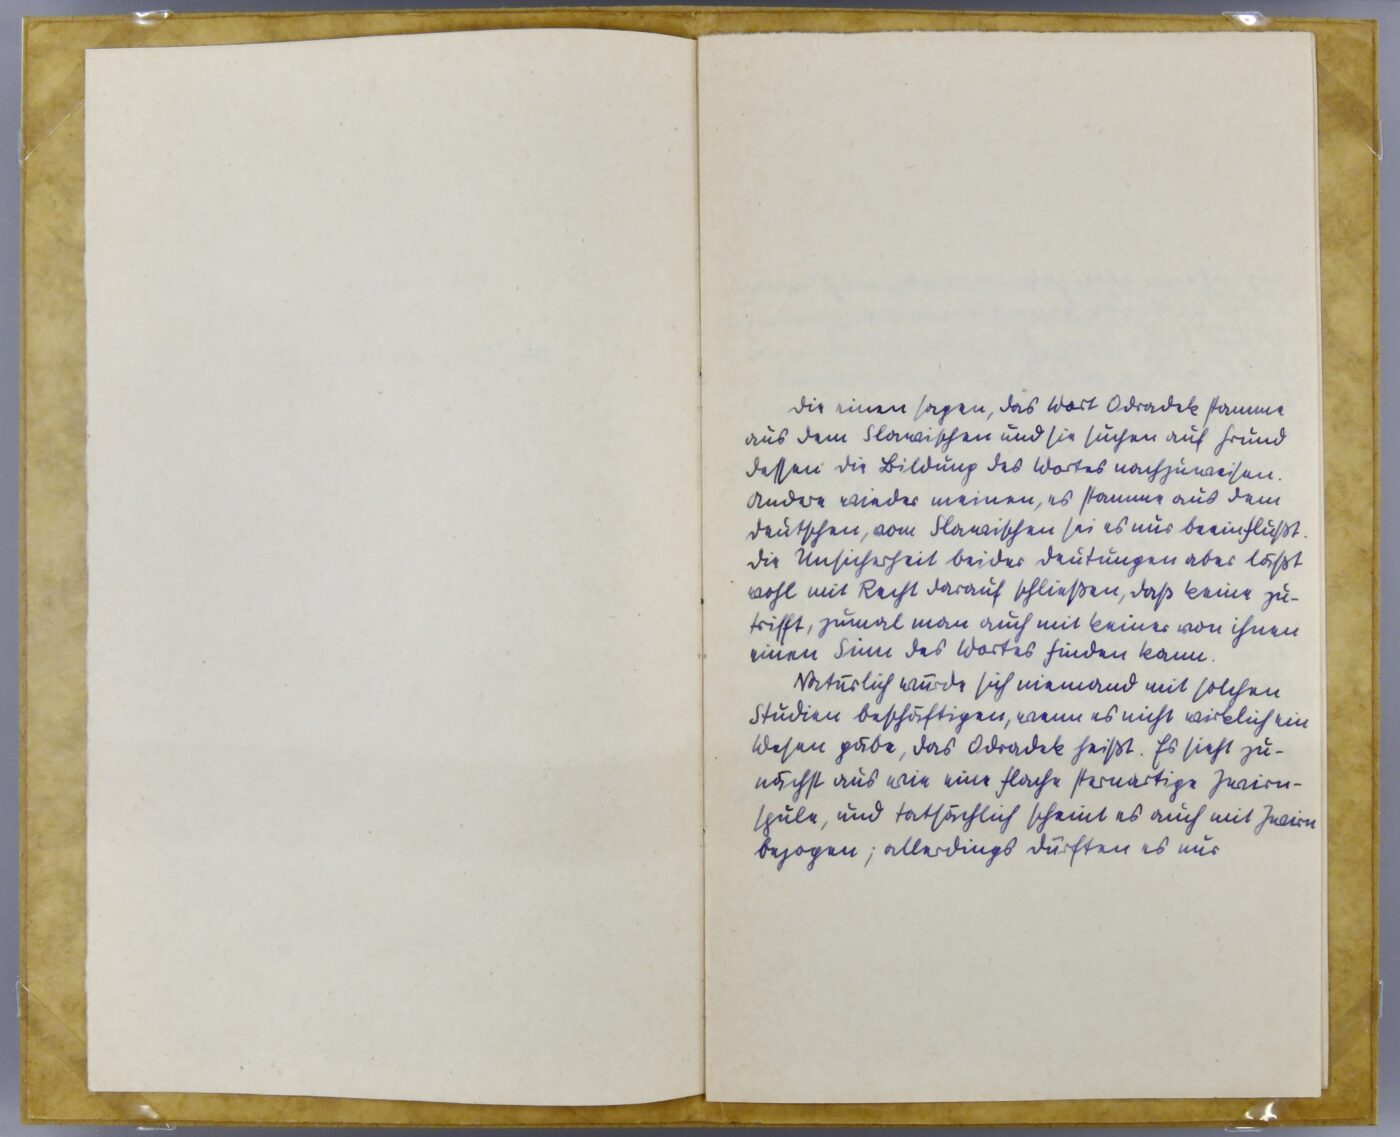 Die einen sagen, das Wort Odradek stamme
aus dem Slawischen und sie suchen auf Grund
dessen die Bildung des Wortes nachzuweisen.
Andere wieder meinen, es stamme aus dem
Deutschen, vom Slawischen sei es nur beeinflußt.
Die Unsicherheit beider Deutungen aber läßt
wohl mit Recht darauf schließen, daß keine zu-
trifft, zumal man auch mit keiner von ihnen
einen Sinn des Wortes finden kann.
Natürlich würde sich niemand mit solchen
Studien beschäftigen, wenn es nicht wirklich ein
Wesen gäbe, das Odradek heißt. Es sieht zu-
nächst aus wie eine flache sternartige Zwirn-
spule, und tatsächlich scheint es auch mit Zwirn
bezogen; allerdings dürften es nur